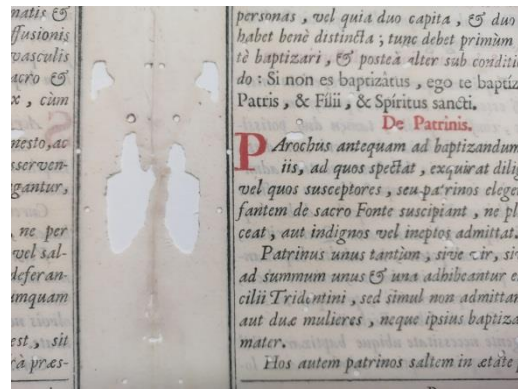 natis &
ffusionis
vasculis
acro &
x, cùm
nesto, ac
sserven-
gantur,
ne per
vel sal-
deferan-
umquam
est, sit
rà præs-
personas, vel quia duo capita, & duo
habet benè distincta; tunc debet primùm
tè baptizari, & posteà alter sub conditio
do: Si non es baptizatus, ego te baptiz
Patris, & Filii, & Spiritus sancti.
De Patrinis.
PArochus antequam ad baptizandum
iis, ad quos spectat, exquirat dilig
vel quos susceptores, seu patrinos elege
fantem de sacro Fonte suscipiant, ne pl
ceat, aut indignos vel ineptos admittat.
Patrinus unus tantùm, sive vir, siv
ad summum unus & una adhibeantur e
cilii Tridentini, sed simul non admittan
aut duæ mulieres, neque ipsius baptiza
mater.
Hos autem patrinos saltem in ætate p